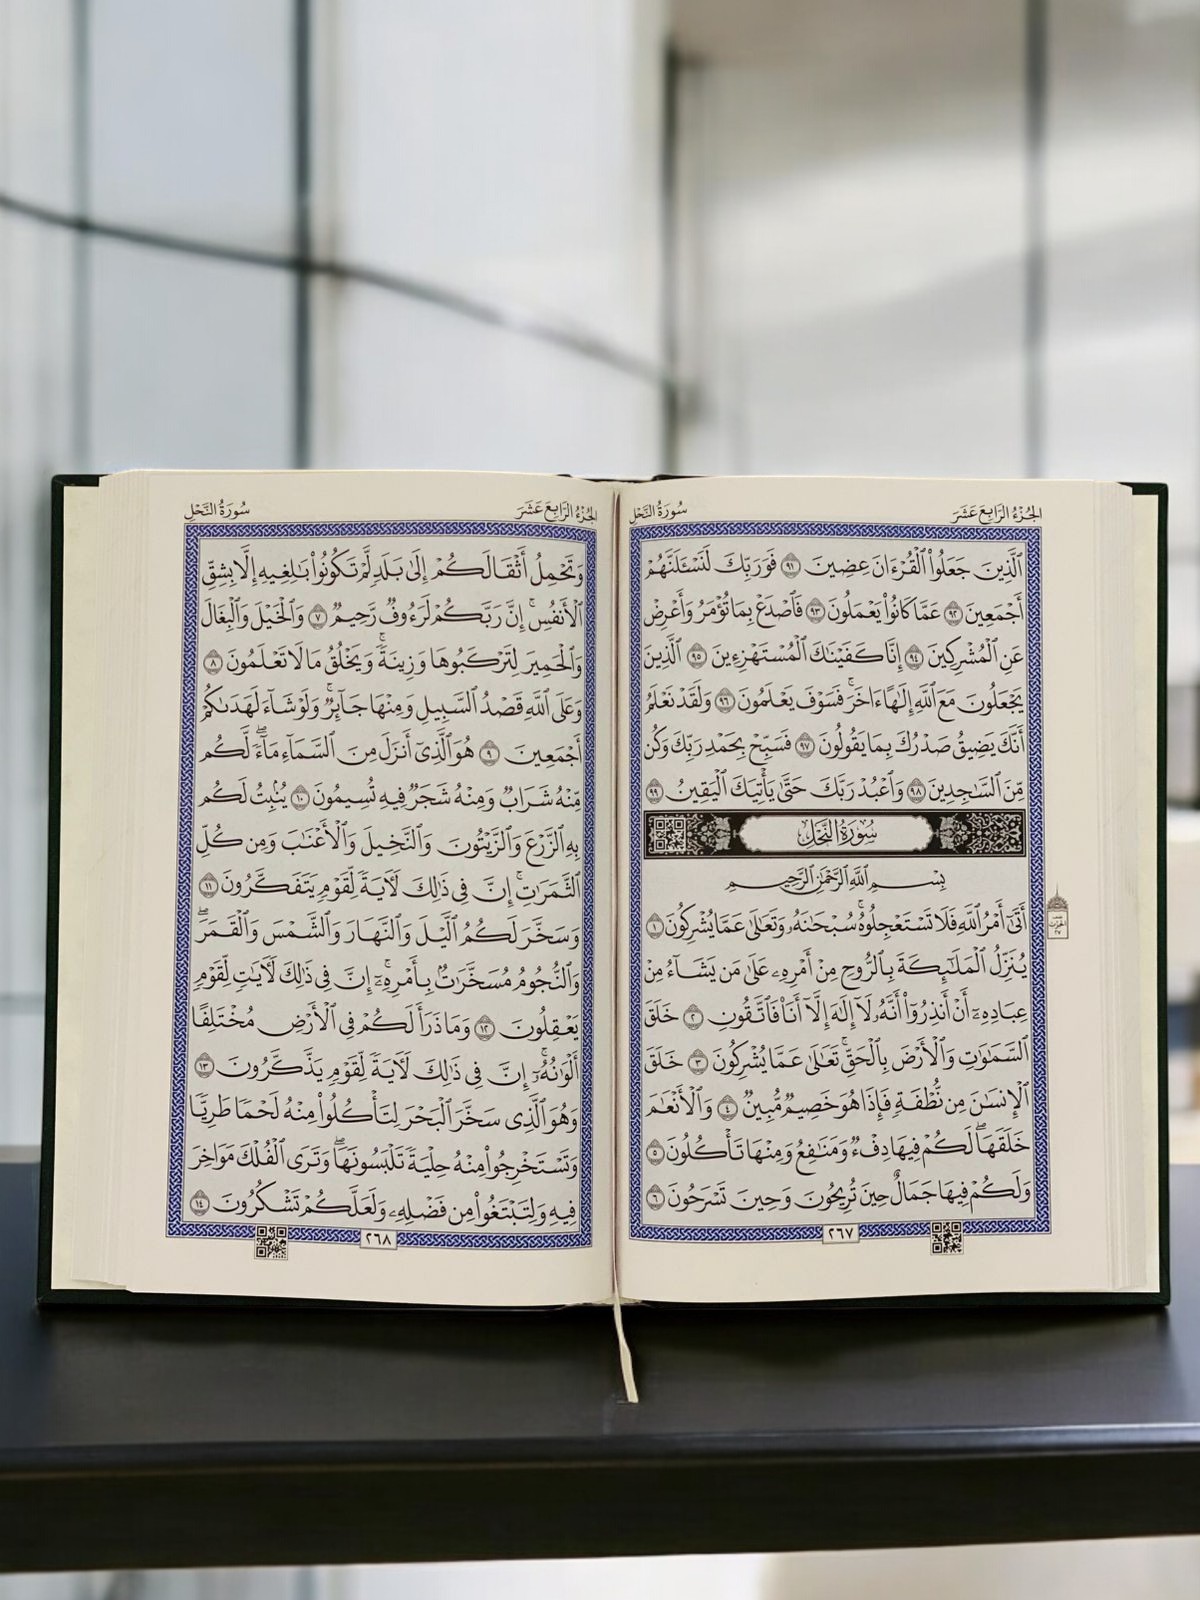 سُورَةُ النَّحْلِ
الجُزْءُ الرَّابِعَ عَشَرَ
ٱلَّذِينَ جَعَلُوا۟ ٱلْقُرْءَانَ عِضِينَ ٩١ فَوَرَبِّكَ لَنَسْـَٔلَنَّهُمْ
أَجْمَعِينَ ٩٢ عَمَّا كَانُوا۟ يَعْمَلُونَ ٩٣ فَٱصْدَعْ بِمَا تُؤْمَرُ وَأَعْرِضْ
عَنِ ٱلْمُشْرِكِينَ ٩٤ إِنَّا كَفَيْنَـٰكَ ٱلْمُسْتَهْزِءِينَ ٩٥ ٱلَّذِينَ
يَجْعَلُونَ مَعَ ٱللَّهِ إِلَـٰهًا ءَاخَرَ ۚ فَسَوْفَ يَعْلَمُونَ ٩٦ وَلَقَدْ نَعْلَمُ
أَنَّكَ يَضِيقُ صَدْرُكَ بِمَا يَقُولُونَ ٩٧ فَسَبِّحْ بِحَمْدِ رَبِّكَ وَكُن
مِّنَ ٱلسَّـٰجِدِينَ ٩٨ وَٱعْبُدْ رَبَّكَ حَتَّىٰ يَأْتِيَكَ ٱلْيَقِينُ ٩٩
سُورَةُ النَّحْلِ
بِسْمِ ٱللَّهِ ٱلرَّحْمَـٰنِ ٱلرَّحِيمِ
أَتَىٰٓ أَمْرُ ٱللَّهِ فَلَا تَسْتَعْجِلُوهُ ۚ سُبْحَـٰنَهُۥ وَتَعَـٰلَىٰ عَمَّا يُشْرِكُونَ ١
يُنَزِّلُ ٱلْمَلَـٰٓئِكَةَ بِٱلرُّوحِ مِنْ أَمْرِهِۦ عَلَىٰ مَن يَشَآءُ مِنْ
عِبَادِهِۦٓ أَنْ أَنذِرُوٓا۟ أَنَّهُۥ لَآ إِلَـٰهَ إِلَّآ أَنَا۠ فَٱتَّقُونِ ٢ خَلَقَ
ٱلسَّمَـٰوَٰتِ وَٱلْأَرْضَ بِٱلْحَقِّ ۚ تَعَـٰلَىٰ عَمَّا يُشْرِكُونَ ٣ خَلَقَ
ٱلْإِنسَـٰنَ مِن نُّطْفَةٍ فَإِذَا هُوَ خَصِيمٌ مُّبِينٌ ٤ وَٱلْأَنْعَـٰمَ
خَلَقَهَا ۗ لَكُمْ فِيهَا دِفْءٌ وَمَنَـٰفِعُ وَمِنْهَا تَأْكُلُونَ ٥
وَلَكُمْ فِيهَا جَمَالٌ حِينَ تُرِيحُونَ وَحِينَ تَسْرَحُونَ ٦
٢٦٧
سُورَةُ النَّحْلِ
الجُزْءُ الرَّابِعَ عَشَرَ
وَتَحْمِلُ أَثْقَالَكُمْ إِلَىٰ بَلَدٍ لَّمْ تَكُونُوا۟ بَـٰلِغِيهِ إِلَّا بِشِقِّ
ٱلْأَنفُسِ ۚ إِنَّ رَبَّكُمْ لَرَءُوفٌ رَّحِيمٌ ٧ وَٱلْخَيْلَ وَٱلْبِغَالَ
وَٱلْحَمِيرَ لِتَرْكَبُوهَا وَزِينَةً ۚ وَيَخْلُقُ مَا لَا تَعْلَمُونَ ٨
وَعَلَى ٱللَّهِ قَصْدُ ٱلسَّبِيلِ وَمِنْهَا جَآئِرٌ ۚ وَلَوْ شَآءَ لَهَدَىٰكُمْ
أَجْمَعِينَ ٩ هُوَ ٱلَّذِىٓ أَنزَلَ مِنَ ٱلسَّمَآءِ مَآءً ۖ لَّكُم
مِّنْهُ شَرَابٌ وَمِنْهُ شَجَرٌ فِيهِ تُسِيمُونَ ١٠ يُنۢبِتُ لَكُم
بِهِ ٱلزَّرْعَ وَٱلزَّيْتُونَ وَٱلنَّخِيلَ وَٱلْأَعْنَـٰبَ وَمِن كُلِّ
ٱلثَّمَرَٰتِ ۗ إِنَّ فِى ذَٰلِكَ لَـَٔايَةً لِّقَوْمٍ يَتَفَكَّرُونَ ١١
وَسَخَّرَ لَكُمُ ٱلَّيْلَ وَٱلنَّهَارَ وَٱلشَّمْسَ وَٱلْقَمَرَ ۖ
وَٱلنُّجُومُ مُسَخَّرَٰتٌۢ بِأَمْرِهِۦٓ ۗ إِنَّ فِى ذَٰلِكَ لَـَٔايَـٰتٍ لِّقَوْمٍ
يَعْقِلُونَ ١٢ وَمَا ذَرَأَ لَكُمْ فِى ٱلْأَرْضِ مُخْتَلِفًا
أَلْوَٰنُهُۥٓ ۗ إِنَّ فِى ذَٰلِكَ لَـَٔايَةً لِّقَوْمٍ يَذَّكَّرُونَ ١٣
وَهُوَ ٱلَّذِى سَخَّرَ ٱلْبَحْرَ لِتَأْكُلُوا۟ مِنْهُ لَحْمًا طَرِيًّا
وَتَسْتَخْرِجُوا۟ مِنْهُ حِلْيَةً تَلْبَسُونَهَا ۖ وَتَرَى ٱلْفُلْكَ مَوَاخِرَ
فِيهِ وَلِتَبْتَغُوا۟ مِن فَضْلِهِۦ وَلَعَلَّكُمْ تَشْكُرُونَ ١٤
٢٦٨